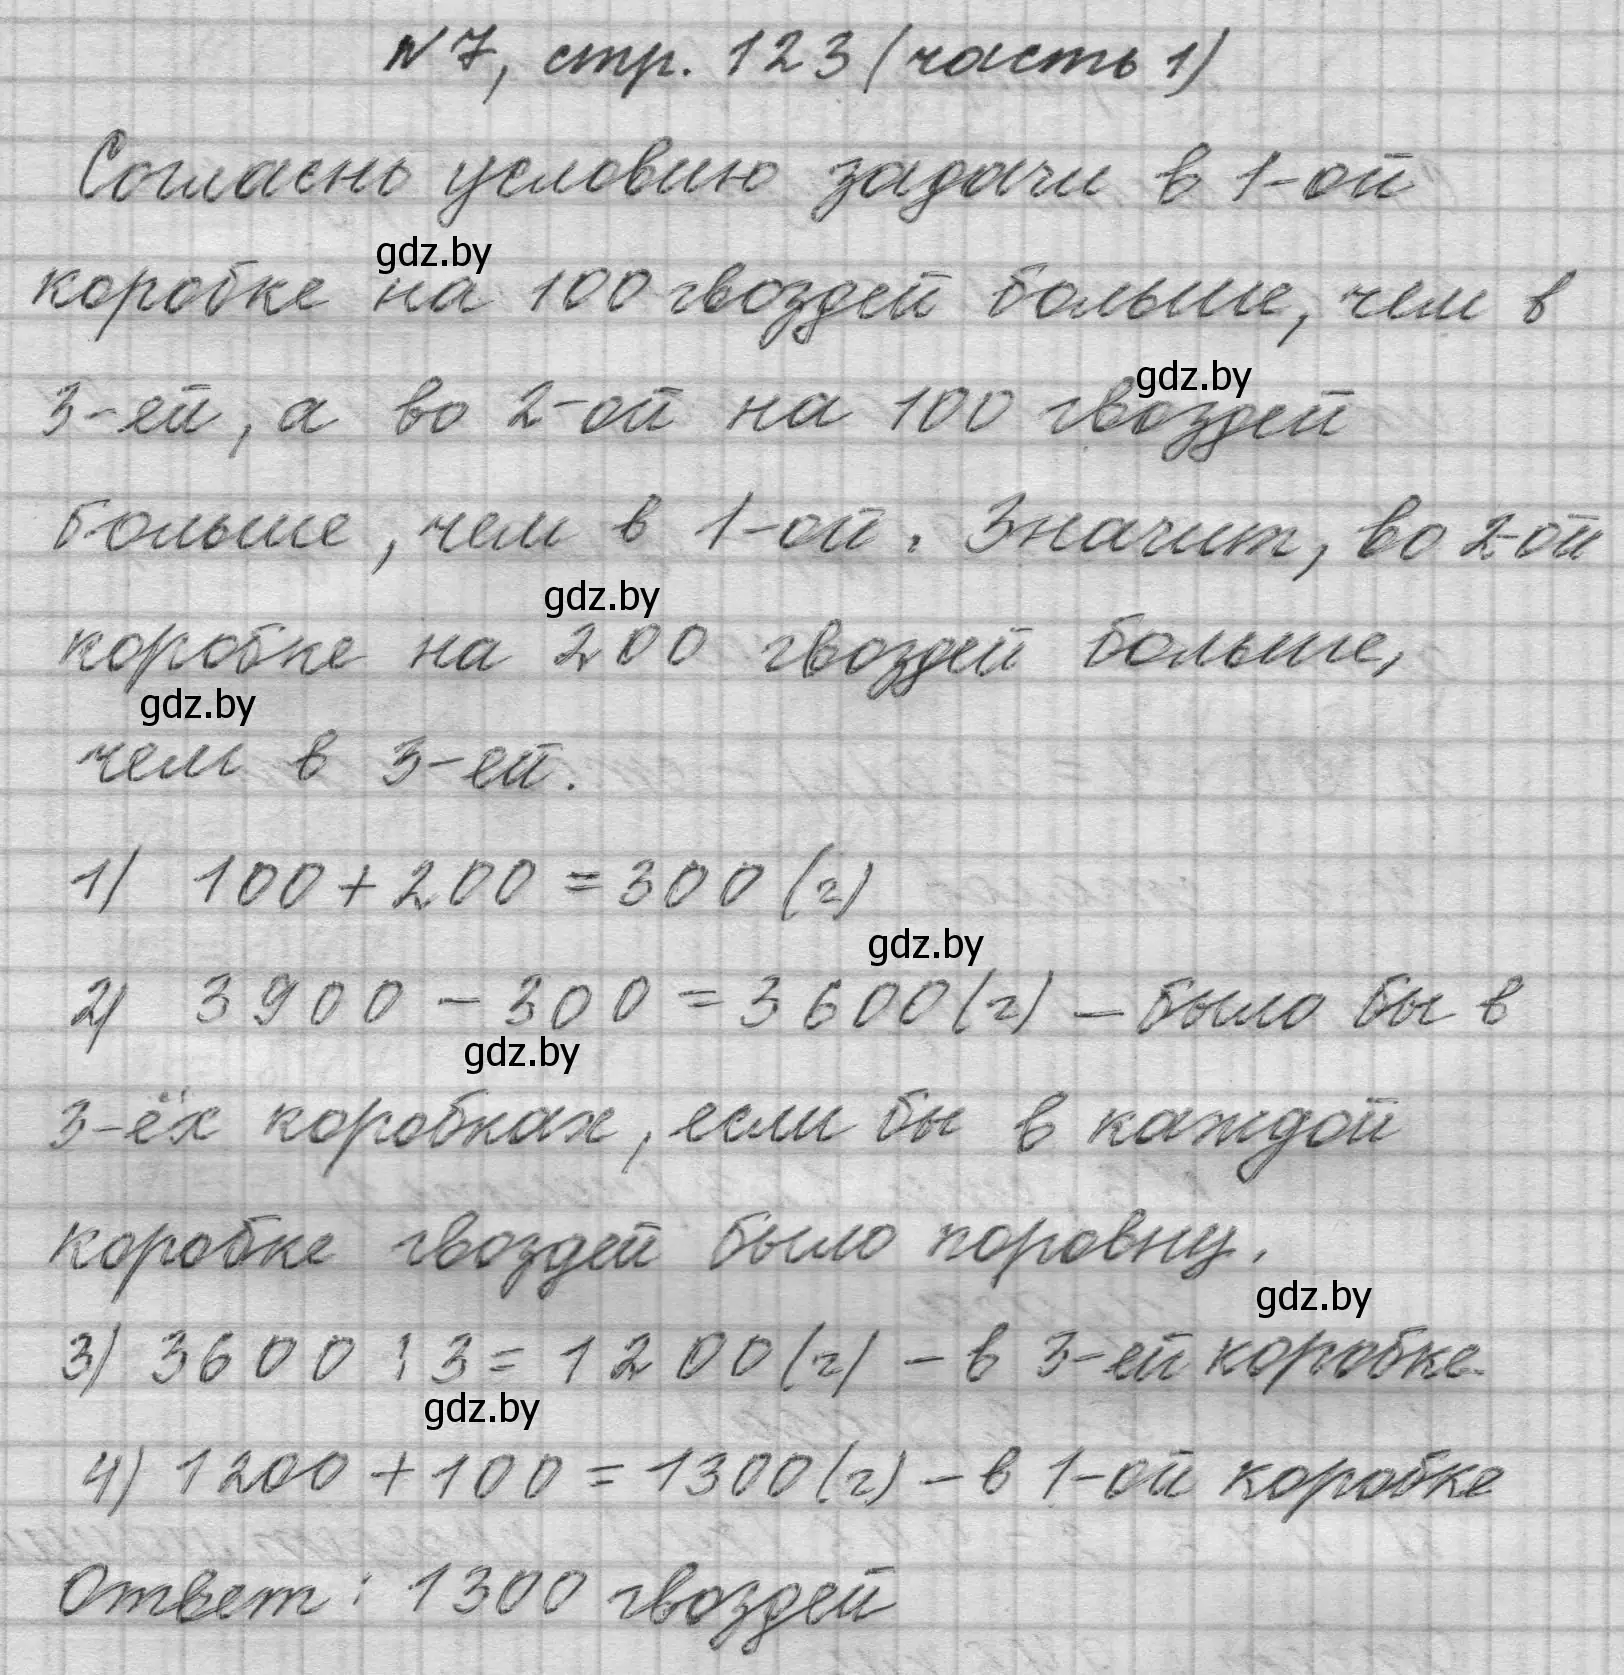 №7, стр. 123 (часть 1)
Согласно условию задачи в 1-ой
gdz.by
коробке на 100 гвоздей больше, чем в
gdz.by
3-ей, а во 2-ой на 100 гвоздей
больше, чем в 1-ой. Значит, во 2-ой
gdz.by
коробке на 200 гвоздей больше,
gdz.by
чем в 3-ей.
1) 100 + 200 = 300 (г)
gdz.by
2) 3900 - 300 = 3600 (г) - было бы в
gdz.by
3-ёх коробках, если бы в каждой
коробке гвоздей было поровну.
gdz.by
3) 3600 : 3 = 1200 (г) - в 3-ей коробке.
gdz.by
4) 1200 + 100 = 1300 (г) - в 1-ой коробке
Ответ: 1300 гвоздей